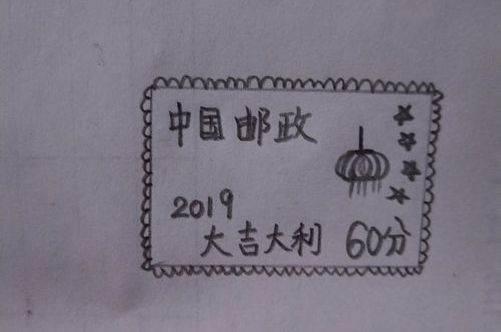 中国邮政
2019
大吉大利 60分